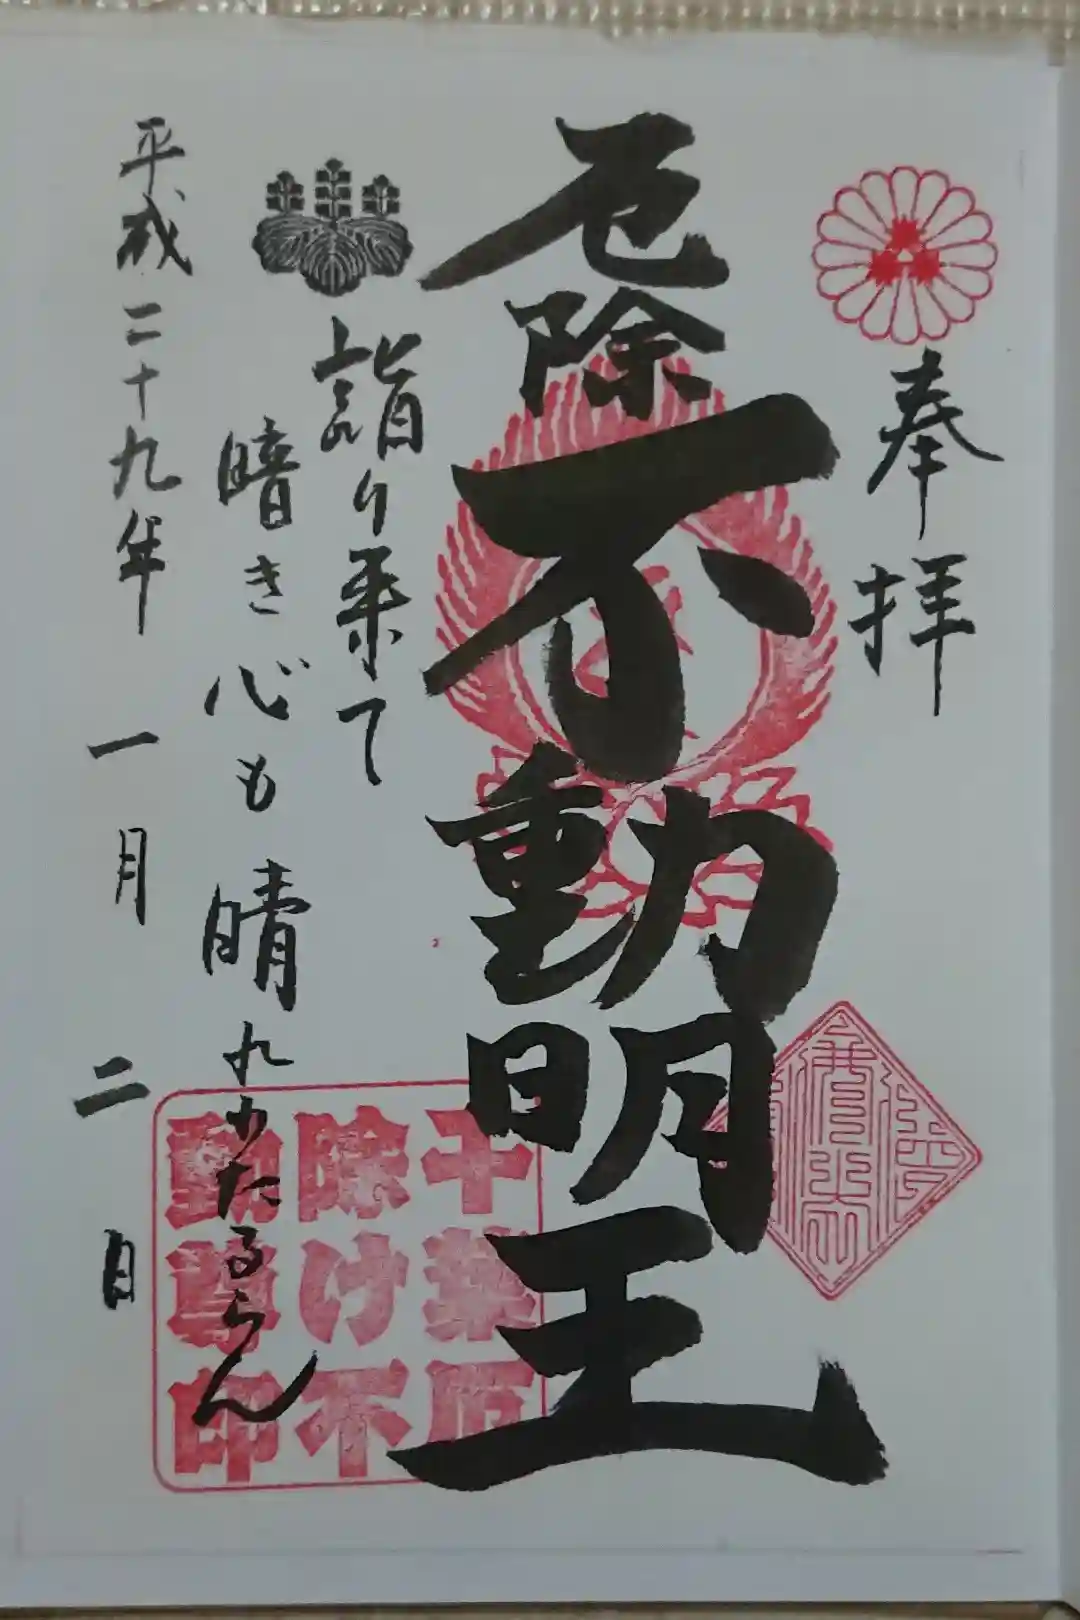 奉拝
厄除不動明王
詣り来て
暗き心も晴れわたるらん
平成二十九年一月二日
千葉厄
除け不
動尊印